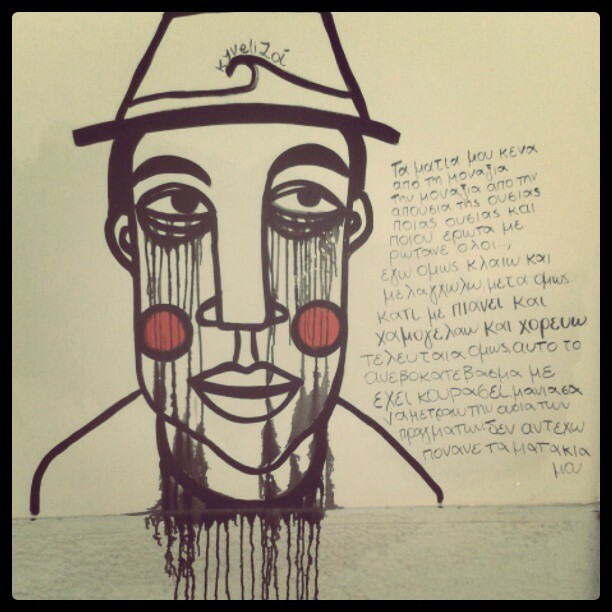 kyveli Zoi
Τα ματια μου κενα
απο τη μοναξια
την μοναξια απο την
απουσια της ουσιας
ποιας ουσιας και
ποιου ερωτα με
ρωτανε ολοι...,
εγω ομως κλαιω και
μελαγχωλω, μετα ομως
κατι με πιανει και
χαμογελαω και χορευω
τελευταια ομως, αυτο το
ανεβοκατεβασμα με
εχει κουρασει, μανιασα
να μετραω την αξια των
πραγματων. δεν αντεχω
πονανε τα ματακια
μου